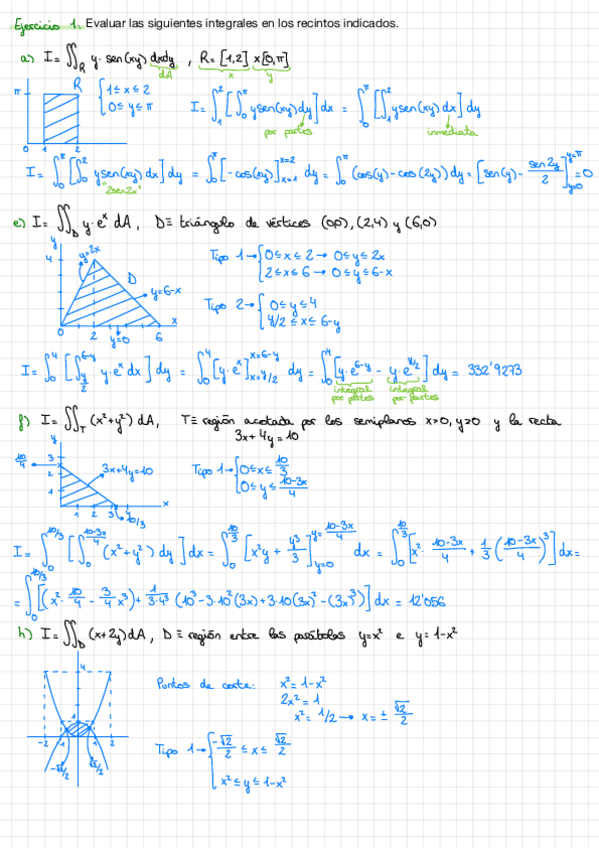 Ejercicio 1. Evaluar las siguientes integrales en los recintos indicados.
a) I = ∬_R y·sen(xy) dxdy , R = [1,2] x [0,π]
dA x y
π R { 1 ≤ x ≤ 2
0 ≤ y ≤ π
I = ∫_1^2 [ ∫_0^π y sen(xy) dy ] dx = ∫_0^π [ ∫_1^2 y sen(xy) dx ] dy
por partes inmediata
0 1 2
I = ∫_0^π [ ∫_0^2 y sen(xy) dx ] dy = ∫_0^π [ -cos(xy) ]_{x=1}^{x=2} dy = ∫_0^π (cos(y) - cos(2y)) dy = [ sen(y) - sen2y/2 ]_{y=0}^{y=π} = 0
"2sen2x"
e) I = ∬_D y·e^x dA , D ≡ triángulo de vértices (0,0), (2,4) y (6,0)
y
4 y=2x D y=6-x
0 2 6 x
y=0
Tipo 1 → { 0 ≤ x ≤ 2 → 0 ≤ y ≤ 2x
2 ≤ x ≤ 6 → 0 ≤ y ≤ 6-x
Tipo 2 → { 0 ≤ y ≤ 4
y/2 ≤ x ≤ 6-y
I = ∫_0^4 [ ∫_{y/2}^{6-y} y·e^x dx ] dy = ∫_0^4 [ y·e^x ]_{x=y/2}^{x=6-y} dy = ∫_0^4 [ y·e^{6-y} - y·e^{y/2} ] dy = 332'9273
integral por partes integral por partes
f) I = ∬_T (x²+y²) dA , T ≡ región acotada por los semiplanos x>0, y>0 y la recta
3x+4y=10
y
10/4 3 2 1 3x+4y=10
1 2 3 4 x
10/3
Tipo 1 → { 0 ≤ x ≤ 10/3
0 ≤ y ≤ 10-3x/4
I = ∫_0^{10/3} [ ∫_0^{10-3x/4} (x²+y²) dy ] dx = ∫_0^{10/3} [ x²y + y³/3 ]_{y=0}^{y=10-3x/4} dx = ∫_0^{10/3} [ x²· 10-3x/4 + 1/3 (10-3x/4)³ ] dx =
= ∫_0^{10/3} [ (x²· 10/4 - 3/4 x³) + 1/3·4³ (10³ - 3·10²(3x) + 3·10(3x)² - (3x)³) ] dx = 12'056
h) I = ∬_D (x+2y) dA , D ≡ región entre las parábolas y=x² e y=1-x²
4
1
-2 -1 1 2
-√2/2 √2/2
Puntos de corte: x² = 1-x²
2x² = 1
x² = 1/2 → x = ± √2/2
Tipo 1 → { -√2/2 ≤ x ≤ √2/2
x² ≤ y ≤ 1-x²